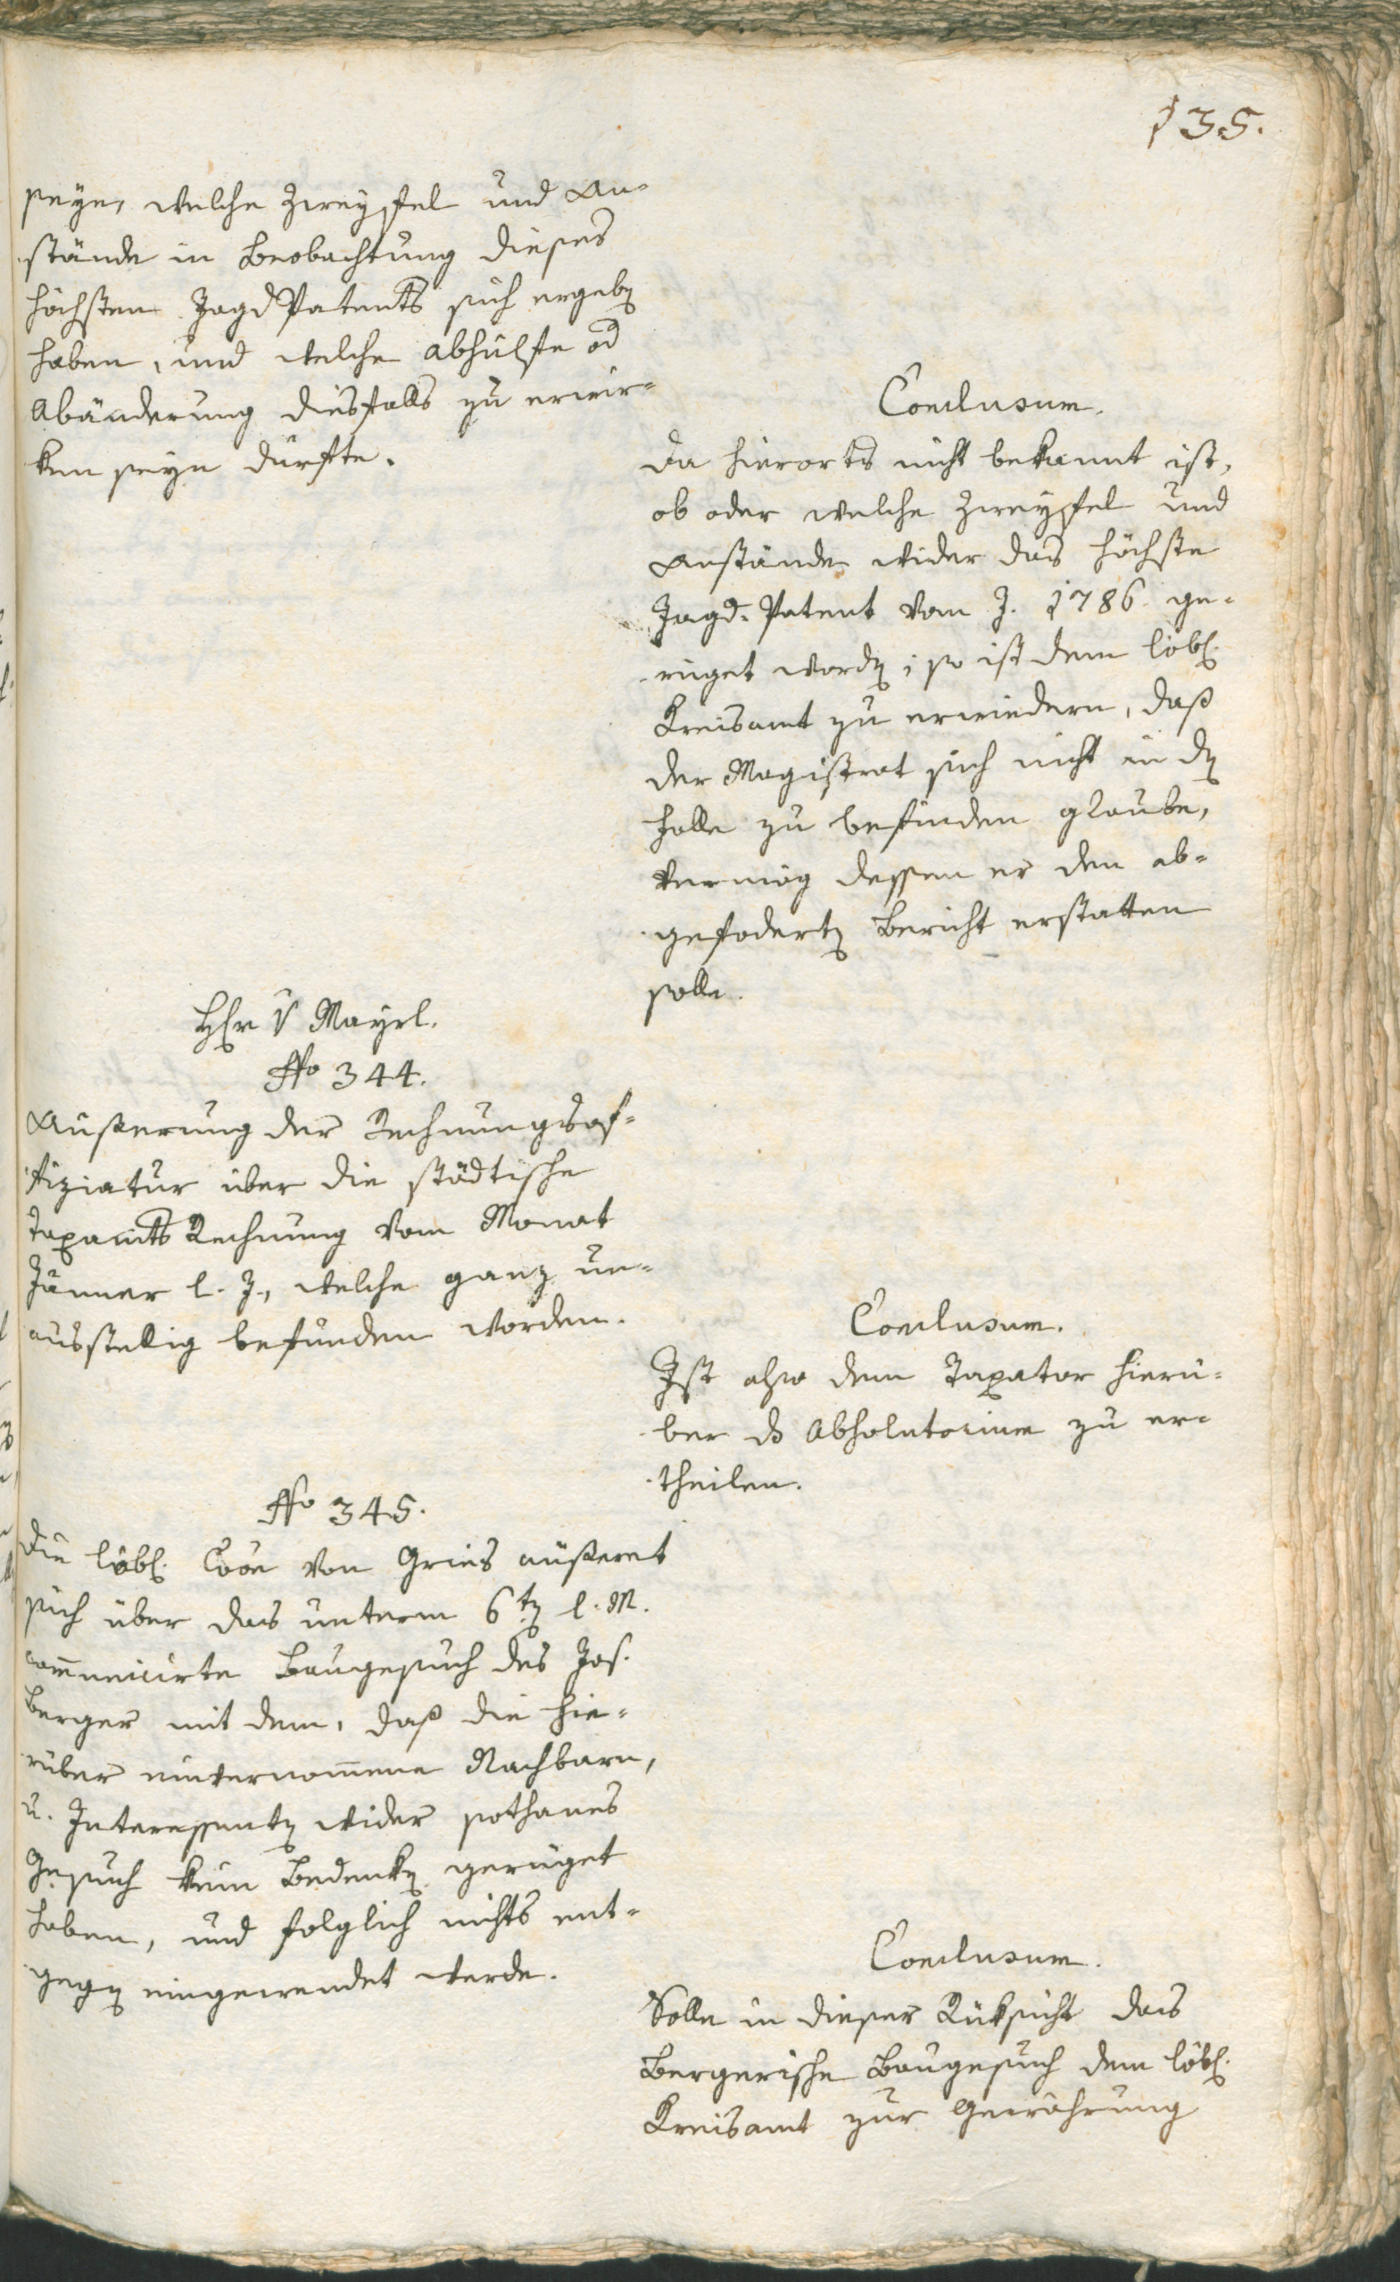 135.
seye, welche Zweyfel und An-
stände in Beobachtung dieses
höchsten Jagd Patents sich ergeben
haben, und welche Abhülfte od
Abänderung diesfalls zu erwir-
ken seyn dürfte.
Conclusum.
Da hierorts nicht bekannt ist,
ob oder welche Zweyfel und
Anstände wider das höchste
Jagd-Patent vom J. 1786. ge-
rüget worden; so ist dem löbl.
Kreisamt zu erwiedern, daß
der Magistrat sich nicht in dem
Falle zu befinden glaube,
vermög dessen er den ab-
gefoderten Bericht erstatten
solle.
Hr v Mayrl.
No 344.
Äußerung der Rechnungsof-
fiziatur über die städtische
Taxamts Rechnung vom Monat
Jänner l. J., welche ganz un-
ausstellig befunden worden.
Conclusum.
Ist also dem Taxator hierü-
ber ds Absolutorium zu er-
theilen.
No 345.
Die löbl. Coon von Gries äußeret
sich über das unterm 6ten l. M.
communicirte Baugesuch des Jos.
Berger mit dem, daß die hie-
rüber einvernommene Nachbarn,
u. Interessenten wider sothanes
Gesuch kein Bedenken gerüget
haben, und folglich nichts ent-
gegen eingewendet werde.
Conclusum.
Solle in dieser Rüksicht das
Bergerische Baugesuch dem löbl.
Kreisamt zur Gewährung